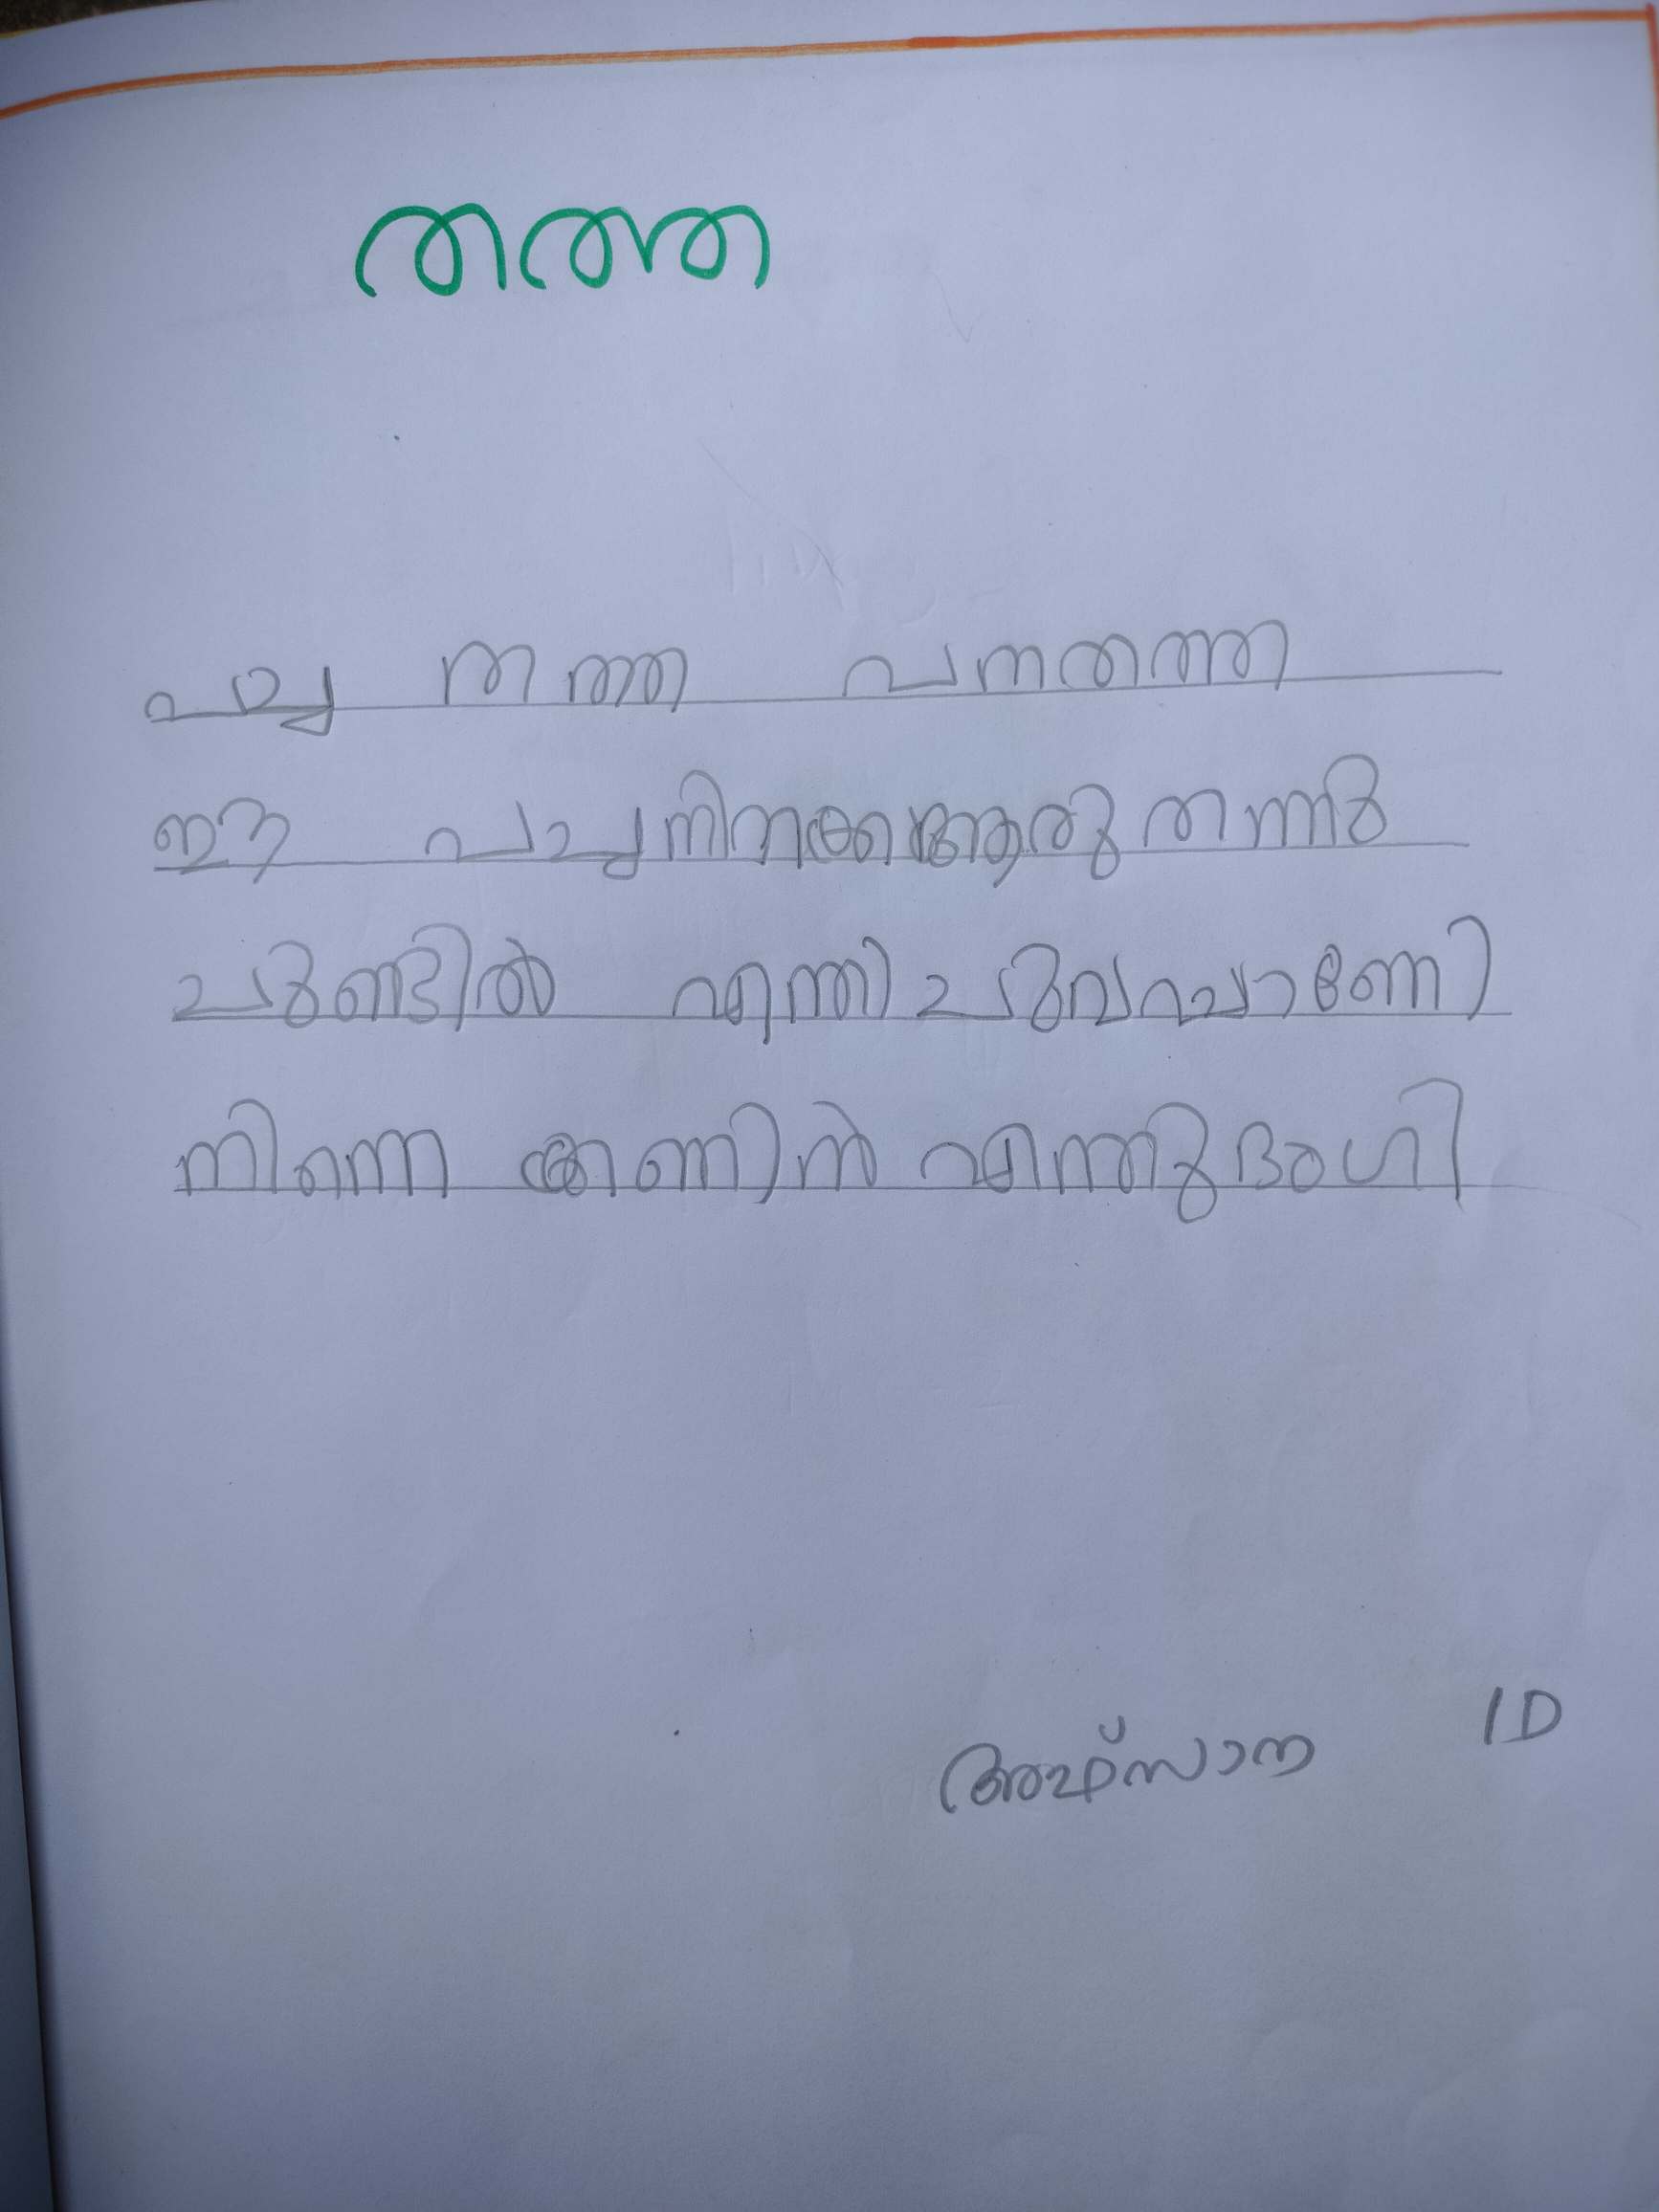 തത്ത
പച്ച തത്ത പനതത്ത
ഈ പച്ച നിനക്ക ആരു തന്നു
ചുണ്ടിൽ എന്തി ചുവപ്പാണേ
നിന്നെ കണിൻ എന്തു ദംഗി
അഫ്സാന 1D